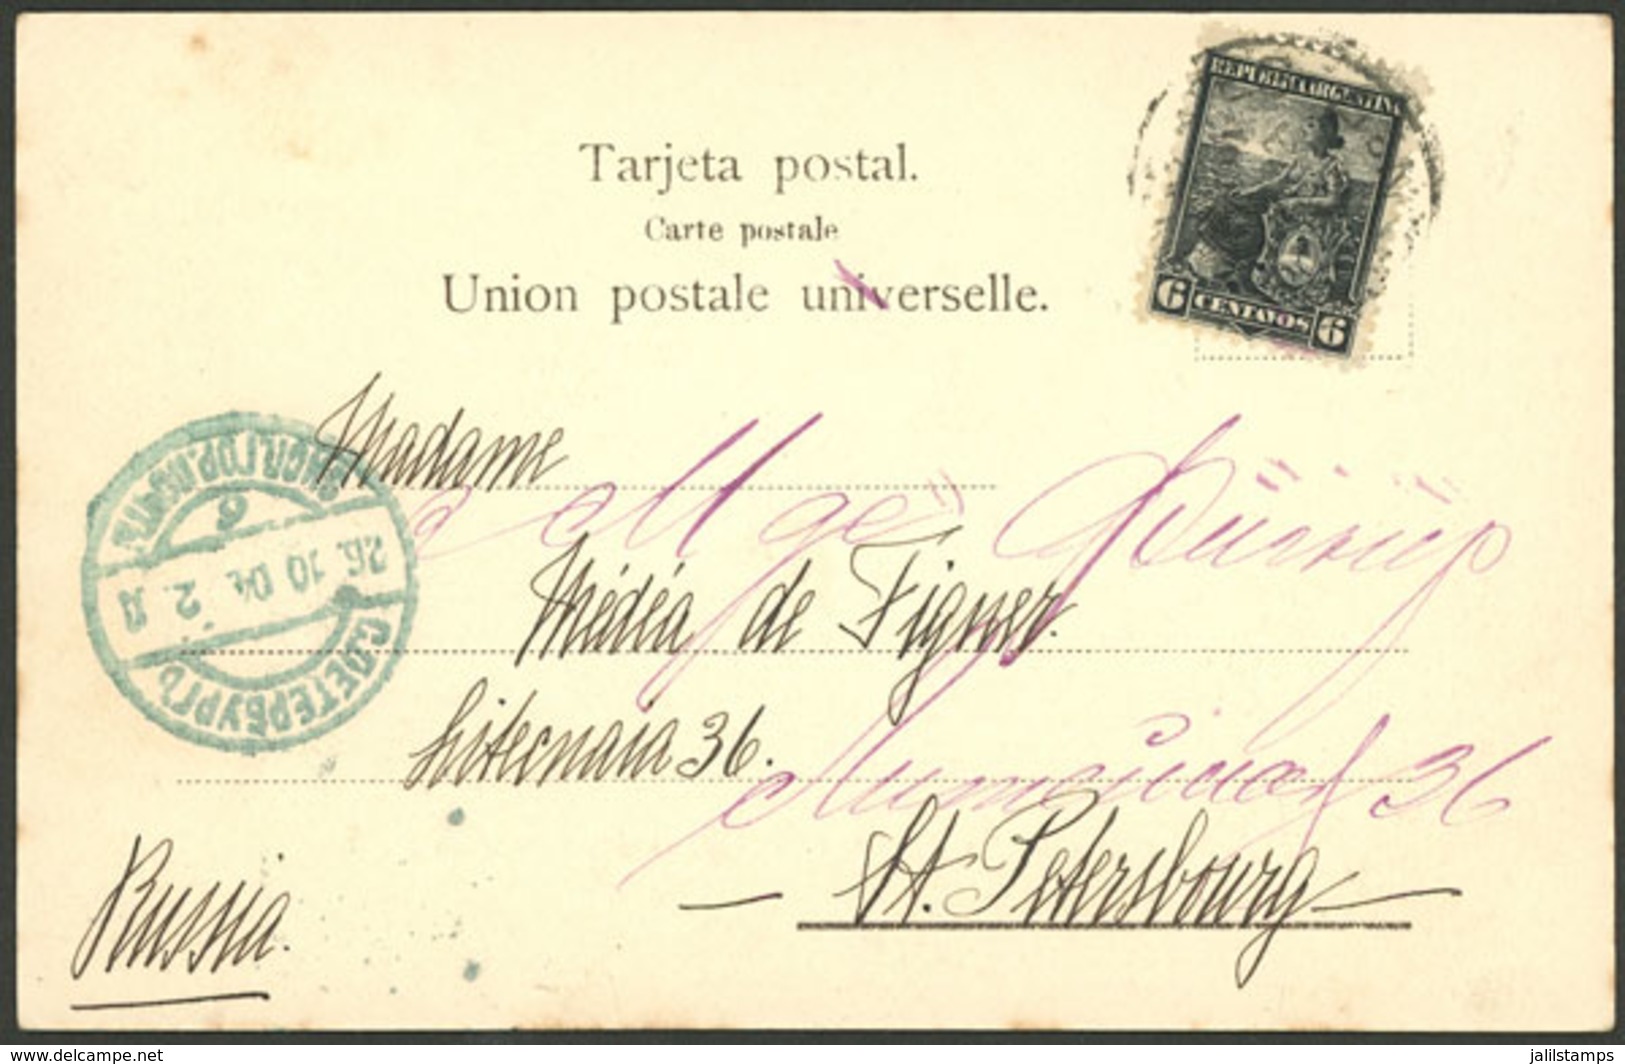 REPUBLICA ARGENTINA
6 CENTAVOS 6
Tarjeta postal.
Carte postale
Union postale universelle.
Madame
Médéa de Figner.
Liteenaia 36.
36
St. Petersbourg
Russia.
С.ПЕТЕРБУРГЪ
26.10 04
6
www.delcampe.net
jalilstamps